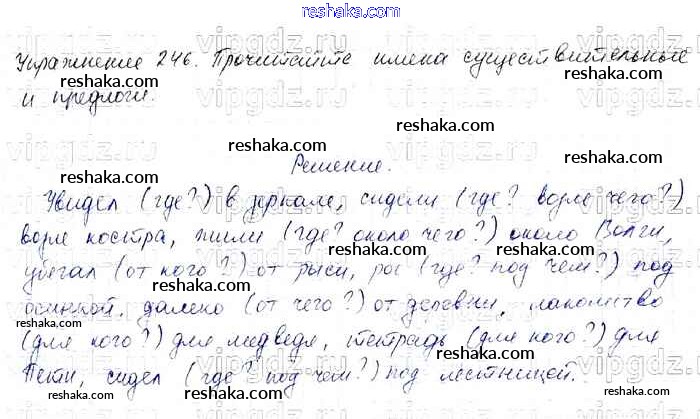 reshaka.com
Упражнение 246. Прочитайте имена существительные
reshaka.com reshaka.com
и предлоги.
reshaka.com
Решение.
reshaka.com reshaka.com
Увидел (где?) в зеркале, сидели (где? возле чего?)
reshaka.com
возле костра, жили (где? около чего?) около Волги,
reshaka.com reshaka.com
убегал (от кого?) от рыси, рос (где? под чем?) под
reshaka.com
осинкой, далеко (от чего?) от деревни, лакомство
reshaka.com reshaka.com
(для кого?) для медведя, тетрадь (для кого?) для
reshaka.com
Пети, сидел (где? под чем?) под лестницей.
reshaka.com reshaka.com
reshaka.com